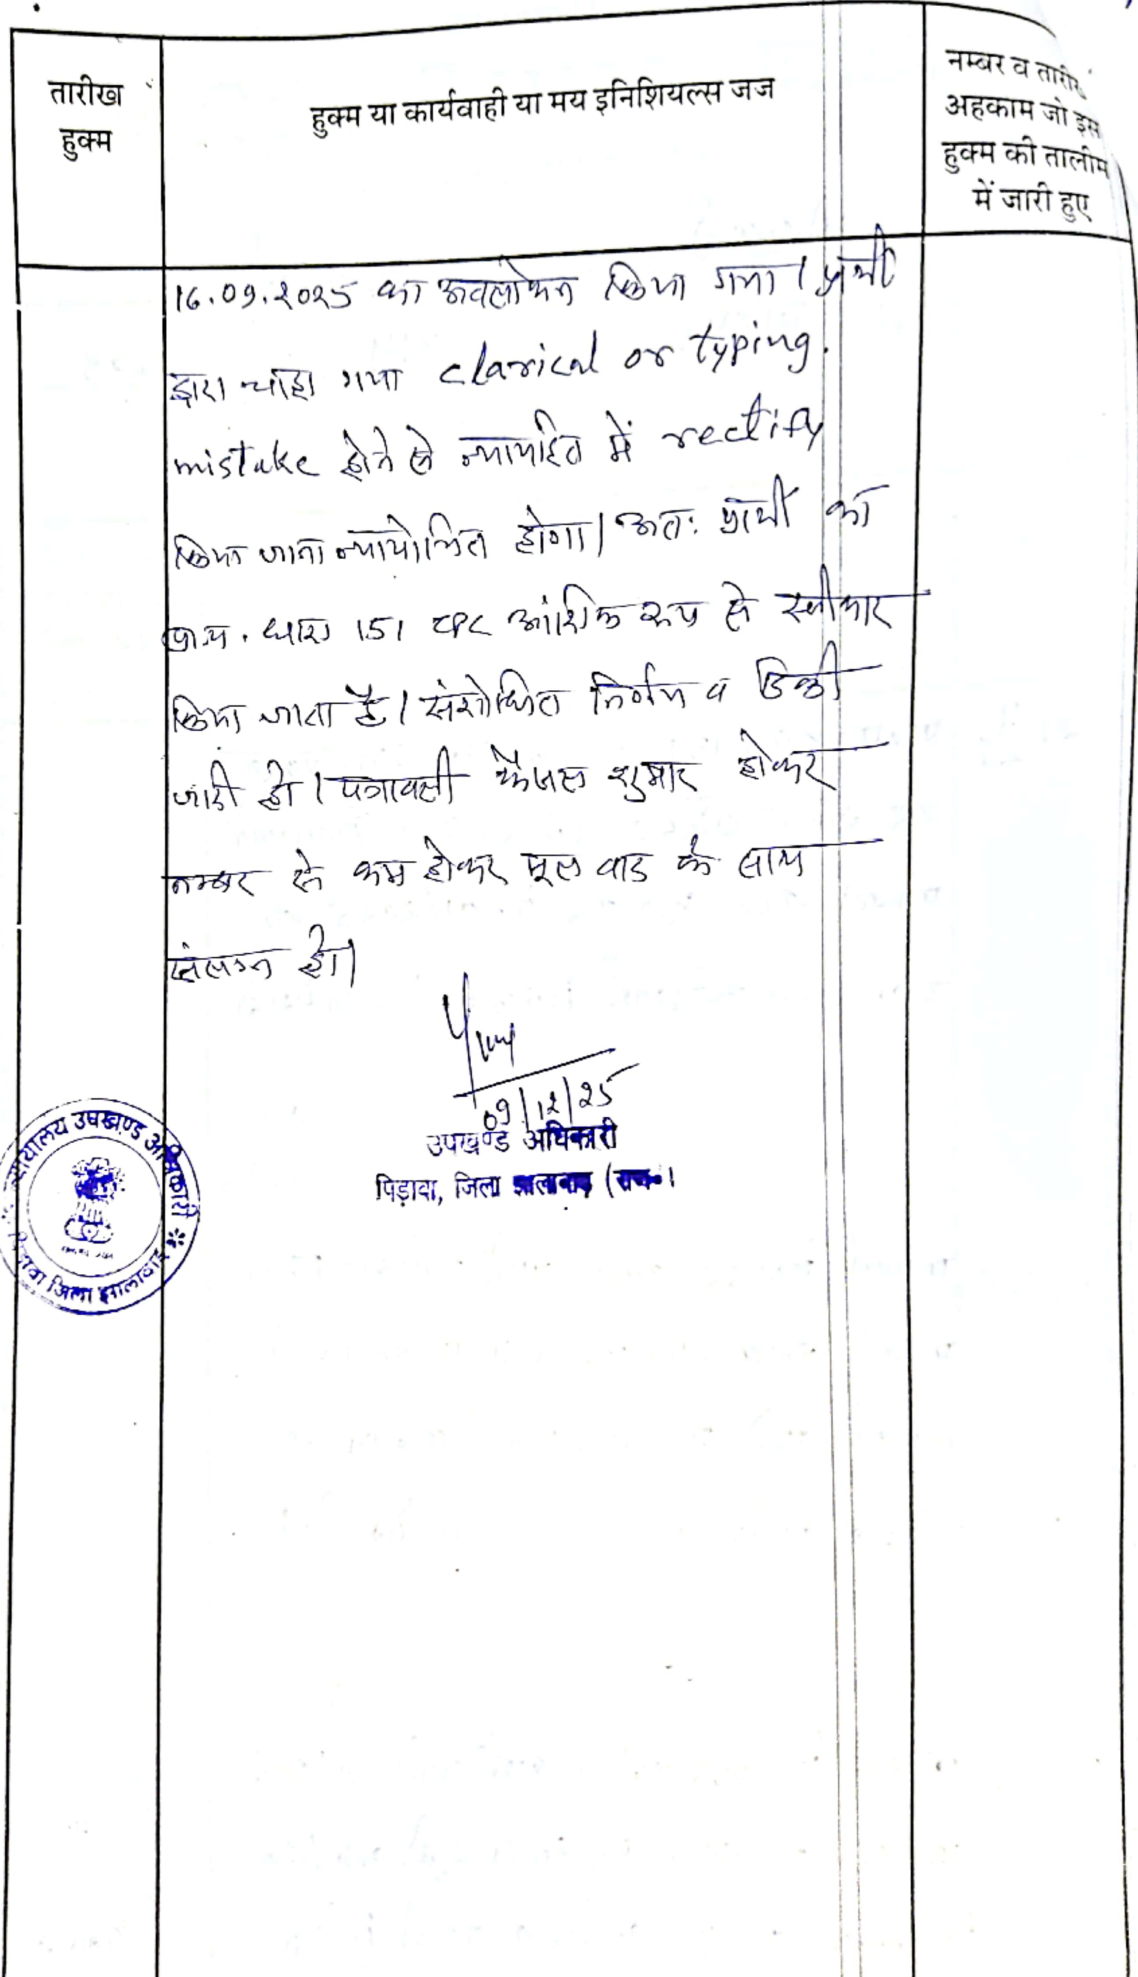 तारीख
हुक्म
हुक्म या कार्यवाही या मय इनिशियल्स जज
नम्बर व तारीख
अहकाम जो इस
हुक्म की तालीम
में जारी हुए
16.09.2025 का अवलोकन किया गया। प्रार्थी
द्वारा चाहा गया clarical or typing
mistake होने से न्यायहित में rectify
किया जाना न्यायोचित होगा। अतः प्रार्थी का
प्रा.प. धारा 151 CPC आंशिक रूप से स्वीकार
किया जाता है। संशोधित निर्णय व डिक्री
जारी हो। पत्रावली फैसल शुमार होकर
नम्बर से कम होकर मूल वाद के साथ
संलग्न हो।
09/12/25
उपखण्ड अधिकारी
पिड़ावा, जिला झालावाड़ (राज०)
न्यायालय उपखण्ड अधिकारी
पिड़ावा जिला झालावाड़